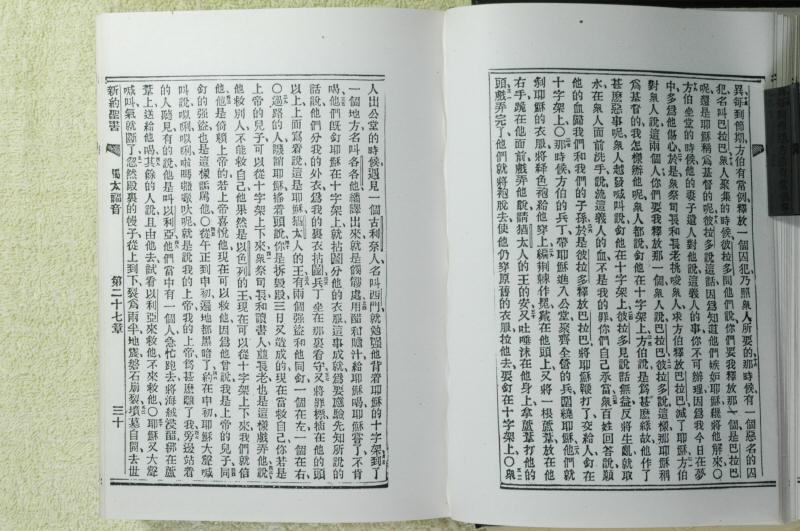 異每到節期方伯有常例釋放一個囚犯乃照衆人所要的那時候有一個惡名的囚
犯名叫巴拉巴衆人聚集的時候彼拉多問他們說你們要我釋放那一個是巴拉巴
呢還是耶穌稱爲基督的呢彼拉多說這話因爲知道他們嫉妒耶穌纔將他解來〇
方伯坐堂的時候他的妻子遣人對他說這義人的事你不可辦理因爲我今日在夢
中多爲他傷心於是衆祭司長和長老挑唆衆人求方伯釋放巴拉巴滅了耶穌方伯
對衆人說這兩個人你們要我釋放那一個衆人說巴拉巴彼拉多說這樣那耶穌稱
爲基督的我怎樣辦他呢衆人都說釘他在十字架上方伯說是爲甚麽緣故他作了
甚麽惡事呢衆人越發喊叫說釘他在十字架上彼拉多見說話無益反將生亂就取
水在衆人面前洗手說流這義人的血不是我的罪你們自己承當衆百姓回答說願
他的血歸我們和我們的子孫於是彼拉多釋放巴拉巴將耶穌鞭打了交給人釘在
十字架上〇那時候方伯的兵丁帶耶穌進入公堂聚齊全營的兵圍繞耶穌他們就
剝耶穌的衣服將絳色袍給他穿上編荆棘作冕戴在他頭上又將一根蘆葦放在他
右手跪在他面前戲弄他說請猶太人的王的安又吐唾沫在他身上拿蘆葦打他的
頭戲弄完了他們就將袍脫去使他仍穿原舊的衣服拉他去要釘在十字架上〇衆
人出公堂的時候遇見一個古利奈人名叫西門就勉强他背着耶穌的十字架到了
一個地方名叫各各他繙譯出來就是髑髏處用醋和膽汁給耶穌喝耶穌嘗了不肯
喝他們旣釘耶穌在十字架上就拈鬮分他的衣服這事成就爲要應驗先知所說的
話說他們分我的外衣爲我的裏衣拈鬮兵丁坐在那裏看守又將罪標插在他的頭
以上上面寫着說這是耶穌猶太人的王有兩個强盜和他同釘一個在左一個在右
〇過路的人譏誚耶穌搖着頭說你是拆毀殿三日又造成的現在當救自己你若是
上帝的兒子可以從十字架上下來衆祭司長和讀書人並長老也是這樣戲弄他說
他救別人不能救自己他果然是以色列的王現在可以從十字架上下來我們就信
他他是倚賴上帝的若上帝喜悅他現在可以救他因爲他曾說我是上帝的兒子同
釘的强盜也是這樣譏駡他〇從午正到申初遍地都黑暗了約在申初耶穌大聲喊
叫說
的人聽見有的說他是叫以利亞他們當中有一個人急忙跑去將海絨浸醋綁在蘆
葦上送給他喝其餘的人說且由他去試看以利亞來救他不來救他〇耶穌又大聲
喊叫氣就斷了忽然殿裏的幔子從上到下裂爲兩半地震磐石崩裂墳墓自開去世
新約聖書
馬太福音
第二十七章
三十